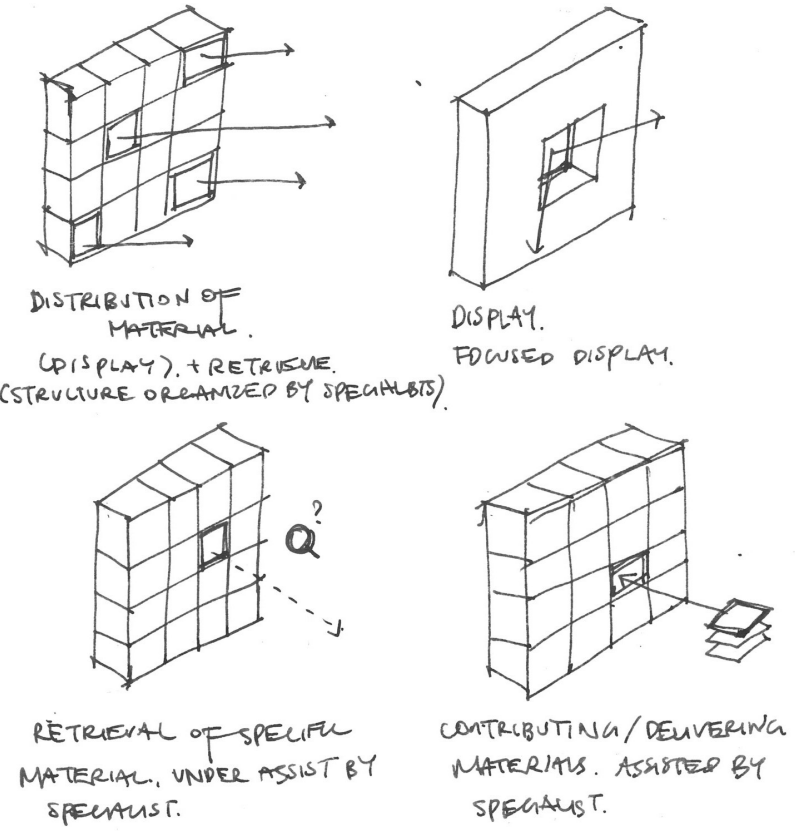 DISTRIBUTION OF
MATERIAL.
(DISPLAY). + RETRIEVE.
(STRUCTURE ORGANIZED BY SPECIALISTS).
DISPLAY.
FOCUSED DISPLAY.
?
RETRIEVAL OF SPECIFIC
MATERIAL, UNDER ASSIST BY
SPECIALIST.
CONTRIBUTING/DELIVERING
MATERIALS. ASSISTED BY
SPECIALIST.